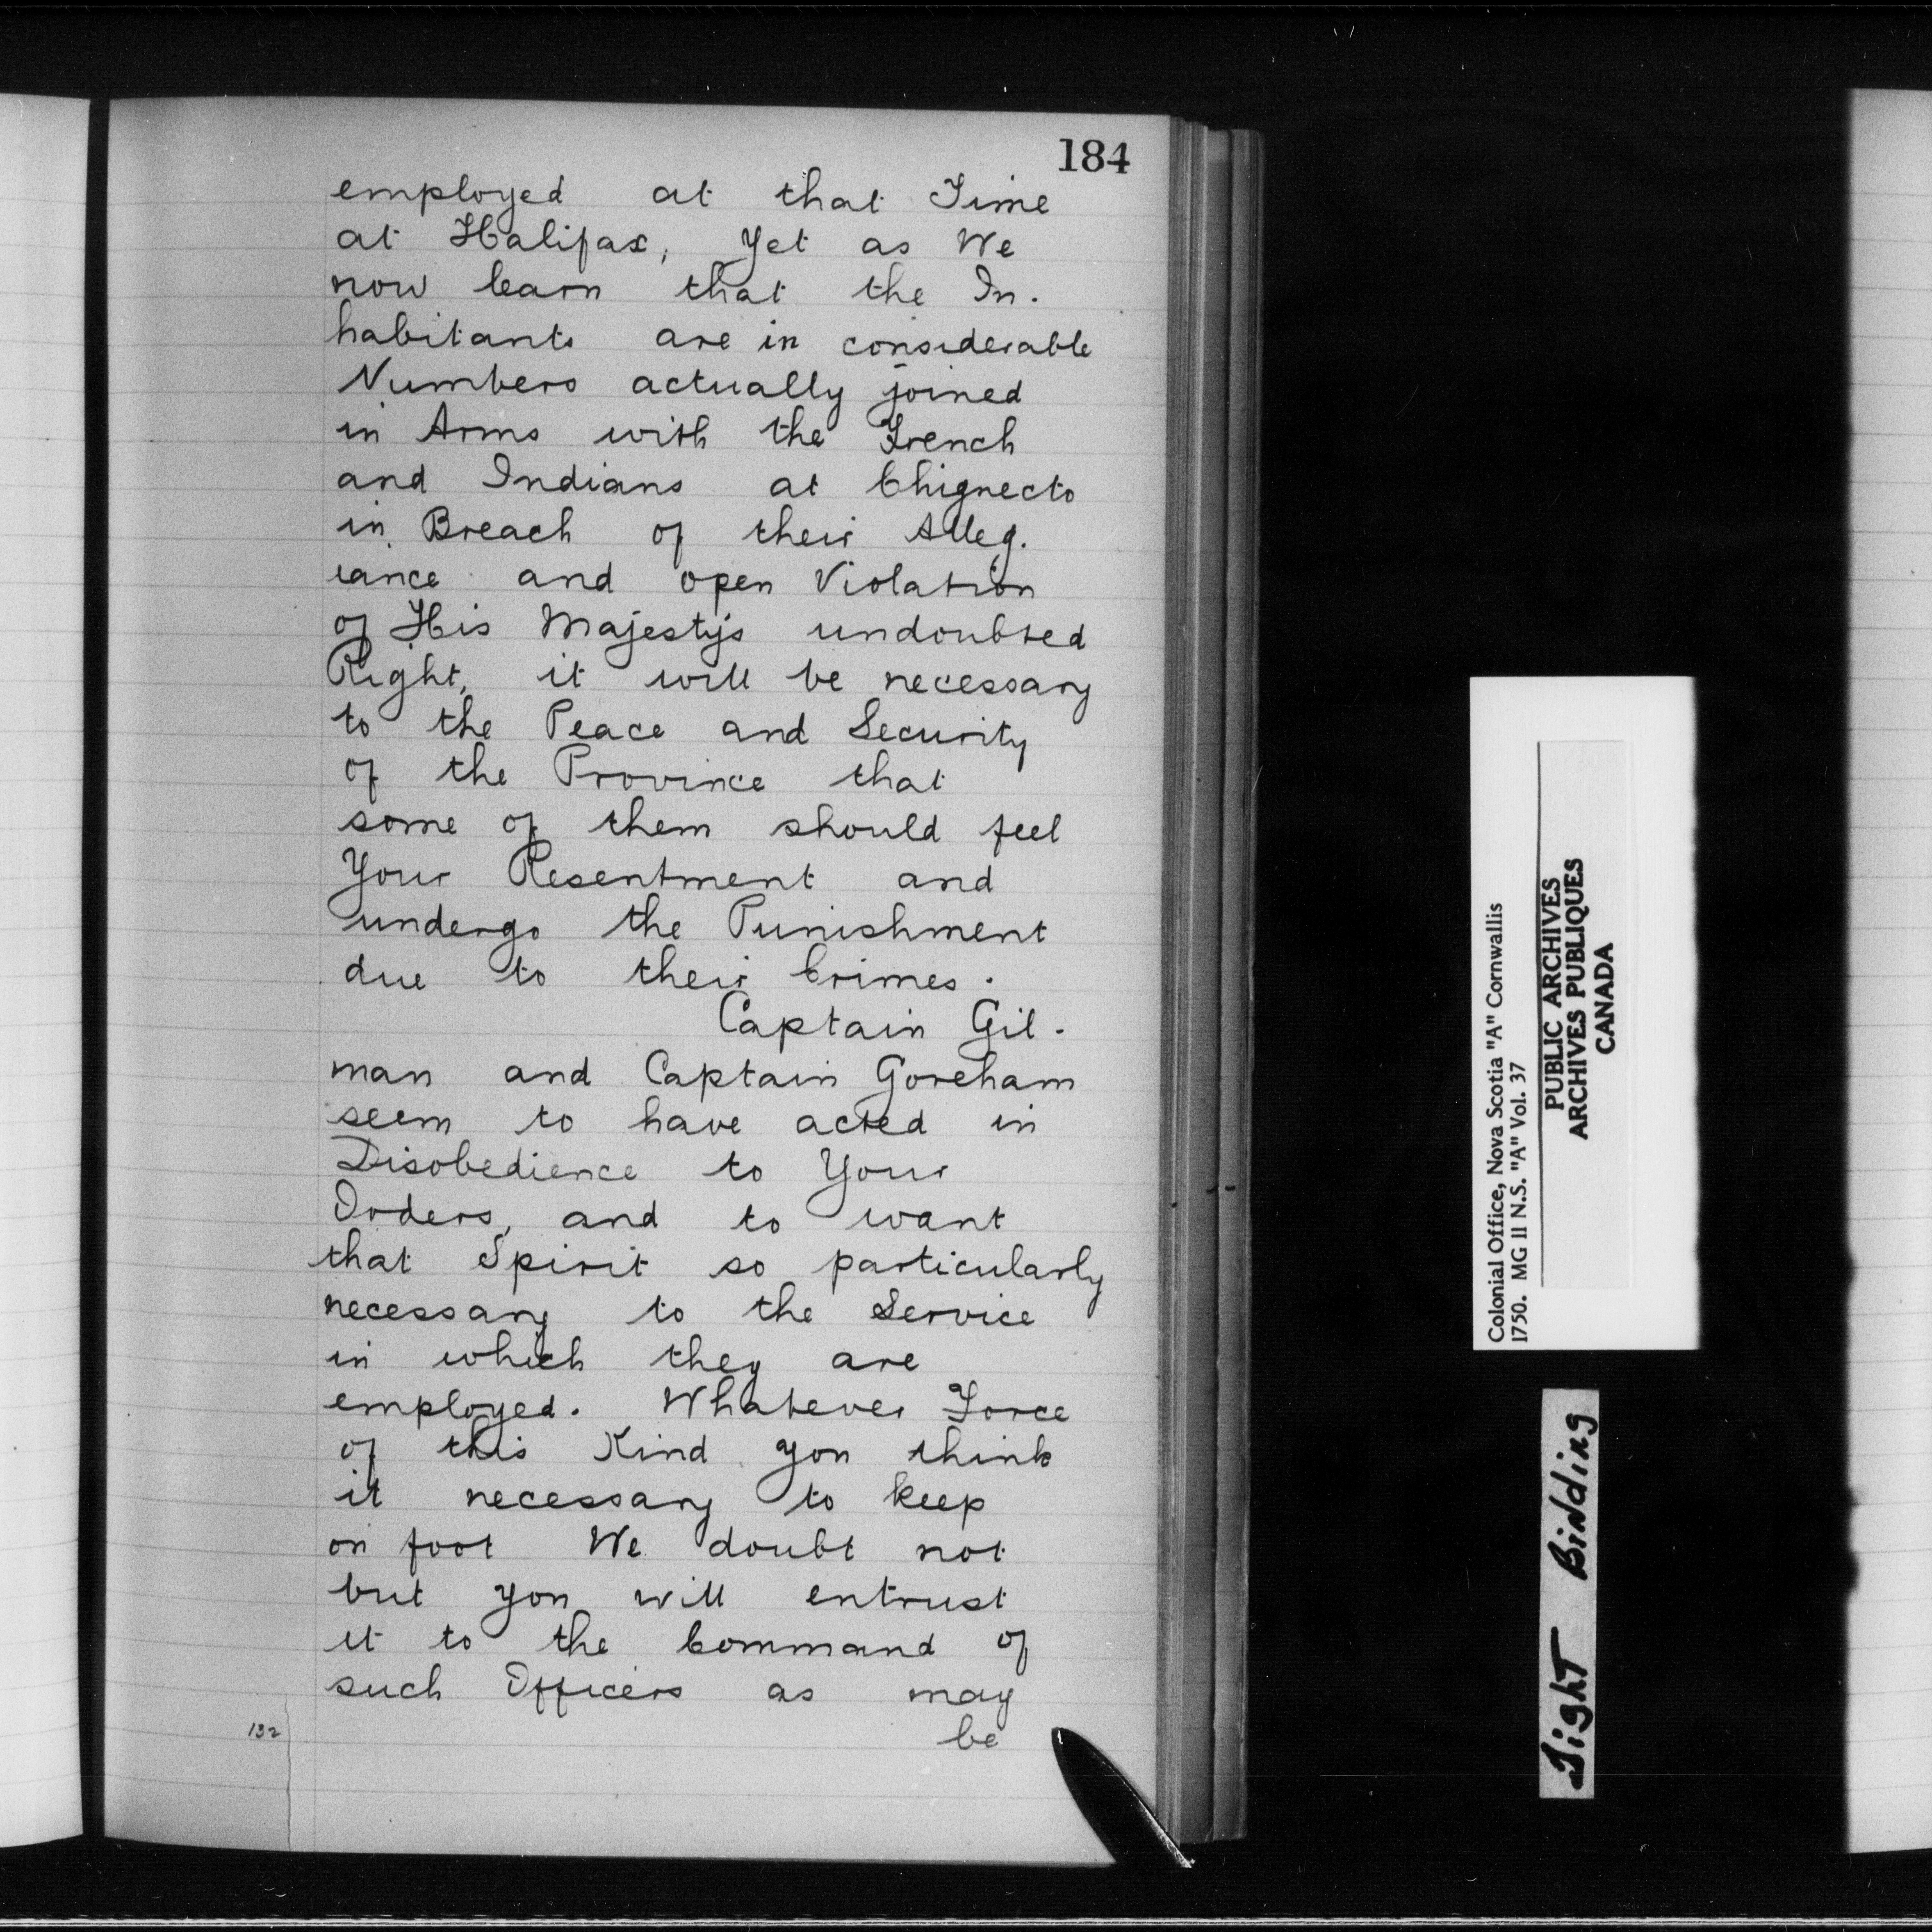 184
employed at that Time
at Halifax, Yet as We
now learn that the In.
habitants are in considerable
Numbers actually joined
in Arms with the French
and Indians at Chignecto
in Breach of their Alleg.
iance and open Violation
of His Majesty's undoubted
Right, it will be necessary
to the Peace and Security
of the Province that
some of them should feel
Your Resentment and
undergo the Punishment
due to their Crimes.
Captain Gil.
man and Captain Goreham
seem to have acted in
Disobedience to Your
Orders, and to want
that Spirit so particularly
necessary to the Service
in which they are
employed. Whatever Force
of this Kind you think
it necessary to keep
on foot We doubt not
but you will entrust
it to the Command of
such Officers as may
be
132
Colonial Office, Nova Scotia "A" Cornwallis
1750. MG II N.S. "A" Vol. 37
PUBLIC ARCHIVES
ARCHIVES PUBLIQUES
CANADA
Tight Binding